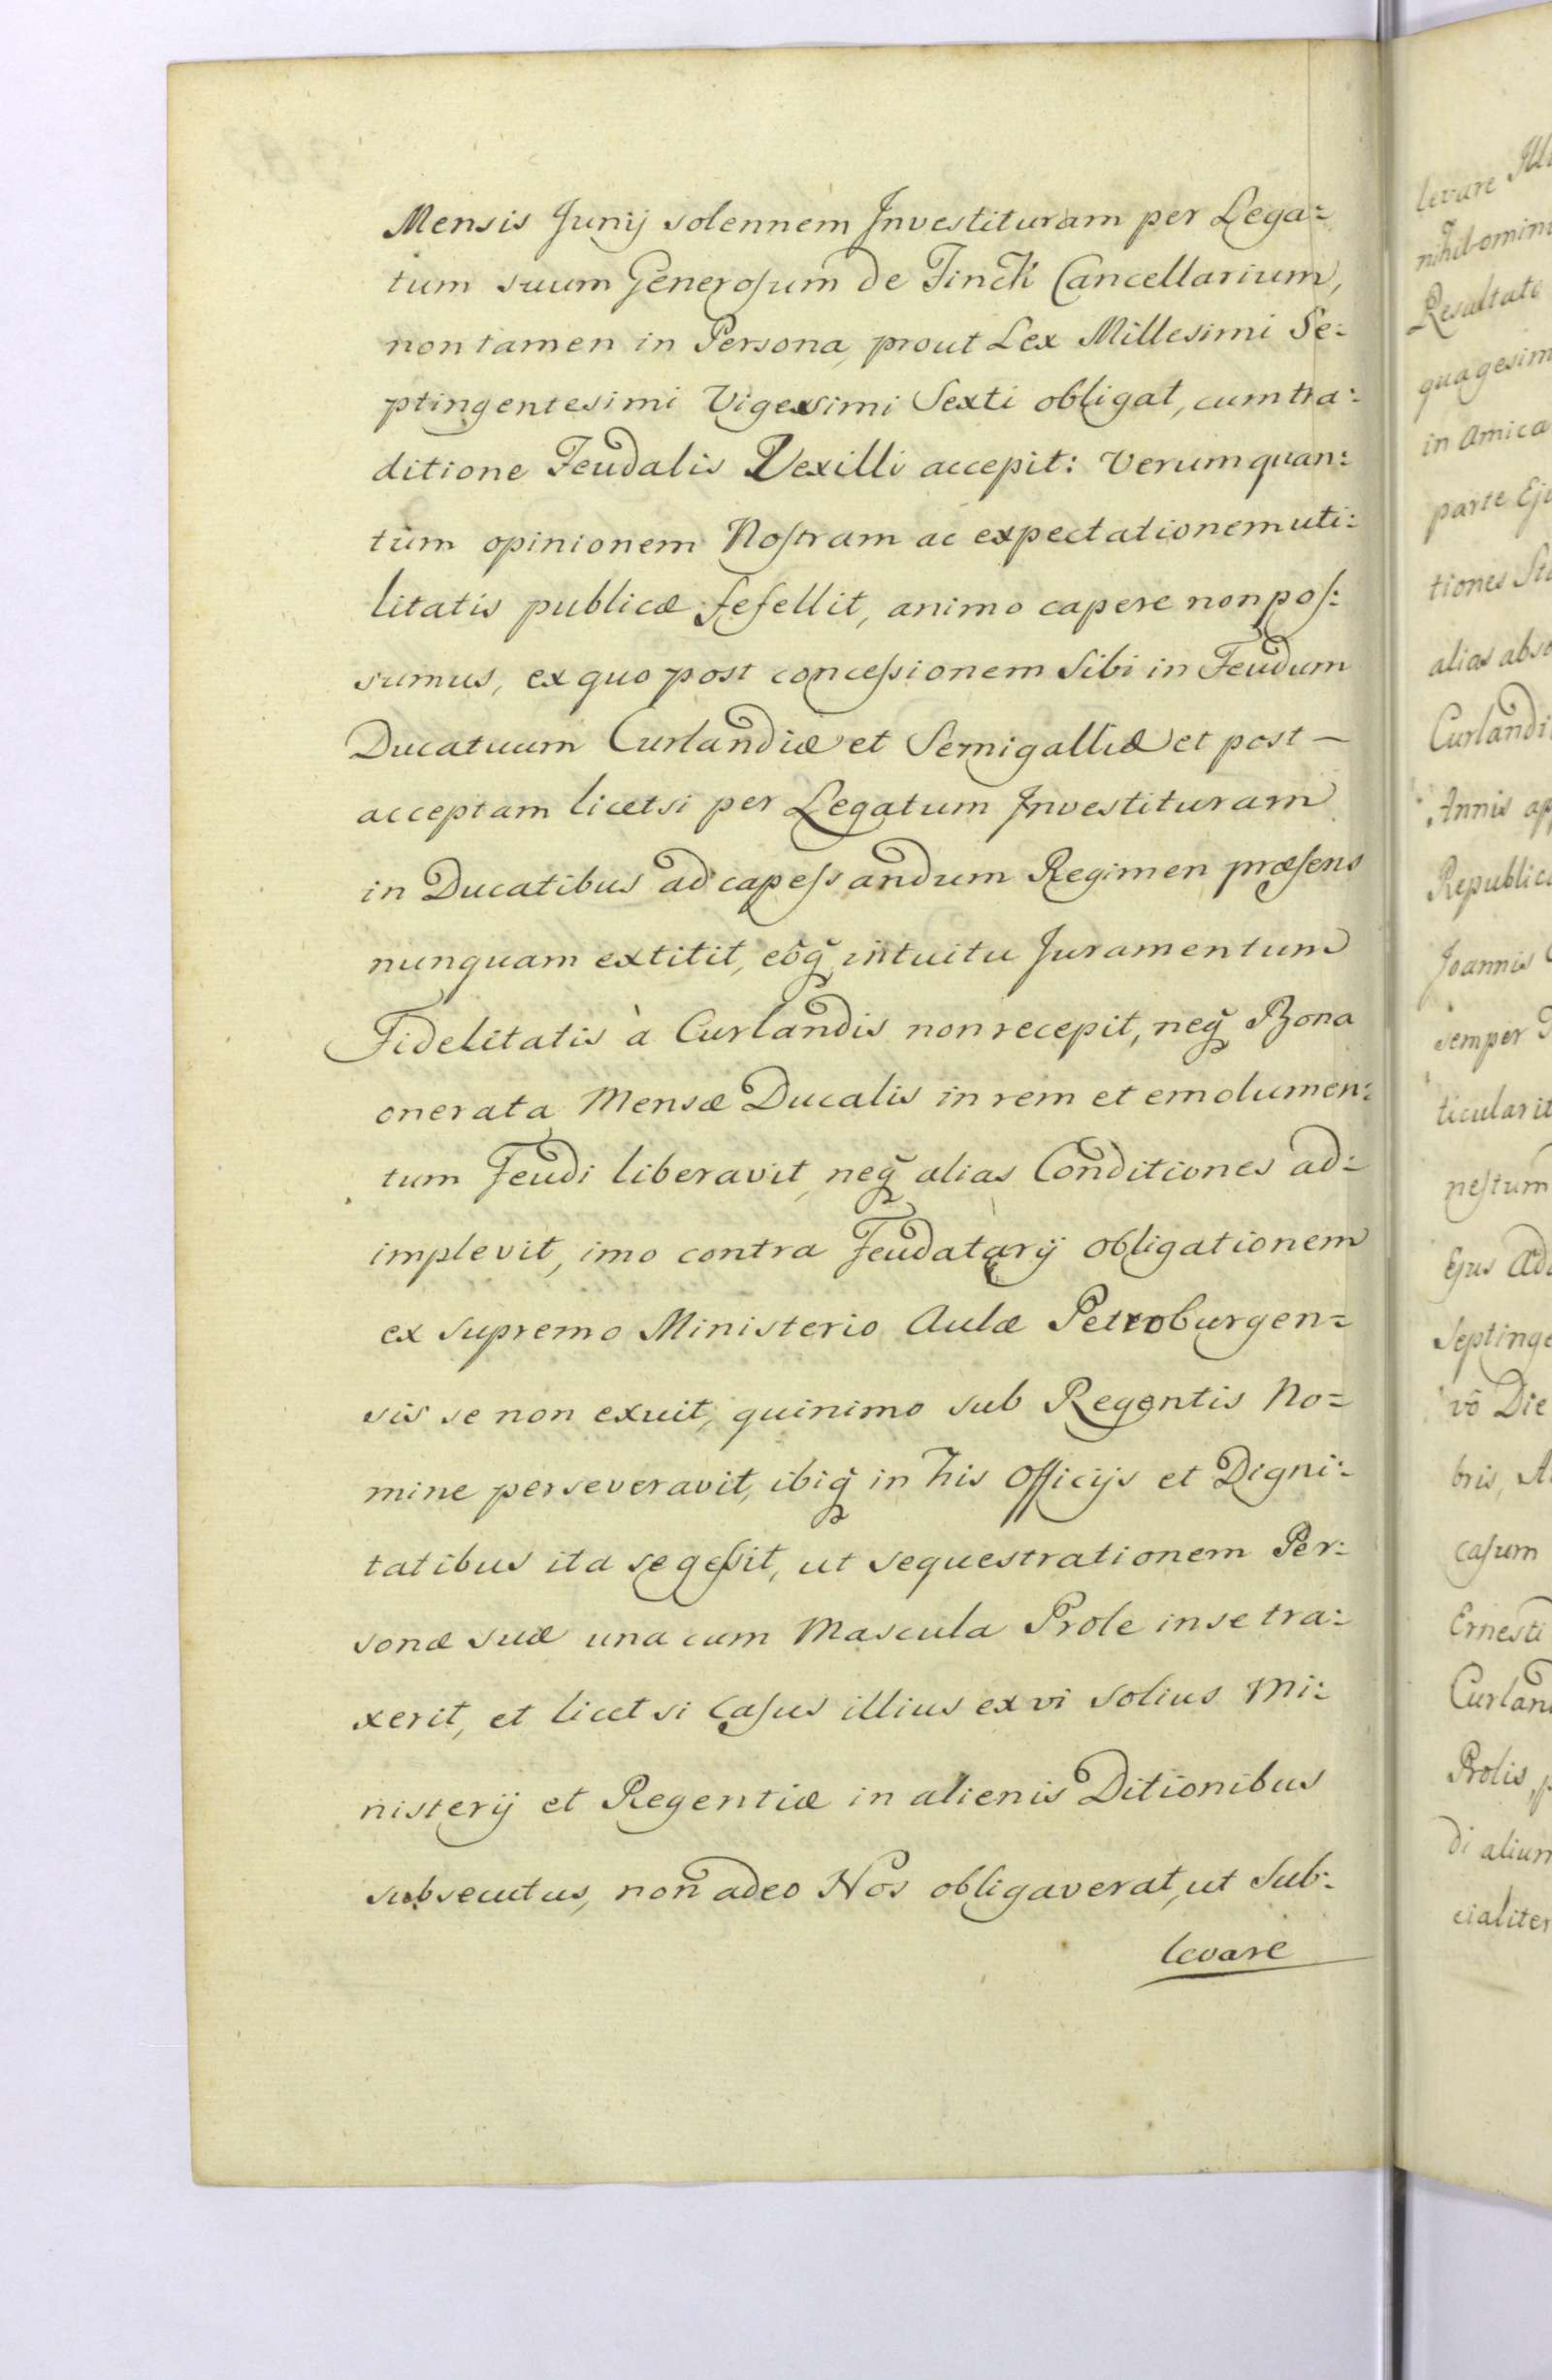 Mensis Junij solennem Investituram per Lega=
tum suum Generosum de Finck Cancellarium,
non tamen in Persona, prout Lex Millesimi Se=
ptingentesimi Vigessimi Sexti obligat, cum tra=
ditione Feudalis Vexilli accepit: verum quan=
tum opinionem Nostram ac expectationem uti=
litatis publicæ fefellit, animo capere non pos=
sumus, ex quo post concessionem Sibi in Feudum
Ducatuum Curlandiæ et Semigalliæ et post –
acceptam licetsi per Legatum Investituram
in Ducatibus ad capessandum Regimen præsens
nunquam extitit, eoq̃ intuitu Juramentum
Fidelitatis à Curlandis non recepit, neq̃ Bona
onerata Mensæ Ducalis in rem et emolumen=
tum Feudi liberavit, neq̃ alias Conditiones ad=
implevit, imo contra Feudatarij obligationem
ex supremo Ministerio Aulæ Petroburgen=
sis se non exuit, quinimo sub Regentis No=
mine perseveravit, ibiq̃ in his Officijs et Digni=
tatibus ita se gessit, ut sequestrationem Per=
sonæ suæ una cum Mascula Prole in se tra=
xerit, et licet si Casus illius ex vi solius Mi=
nisterij et Regentiæ in alienis Ditionibus
subsecutus, non adeo Nos obligaverat, ut sub=
levare
levare
Resultate
quagesim
in Amica
parte
tiones
alias
Curlandi
Annis
Republic
Joannis
semper
ticularit
nestum
Ejus
Septinge
vô Die
bris,
casum
Ernesti
Curlan
Prolis,
di alium
cialiter